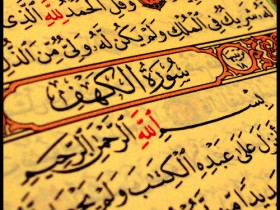 وَقُلِ الْحَمْدُ لِلَّهِ الَّذِي
شَرِيكٌ فِي الْمُلْكِ وَلَمْ يَكُن لَّهُ وَلِيٌّ مِّنَ الذُّلِّ
سُورَةُ الْكَهْفِ
بِسْمِ اللَّهِ الرَّحْمَٰنِ الرَّحِيمِ
عَلَىٰ عَبْدِهِ الْكِتَٰبَ وَلَمْ يَجْعَل